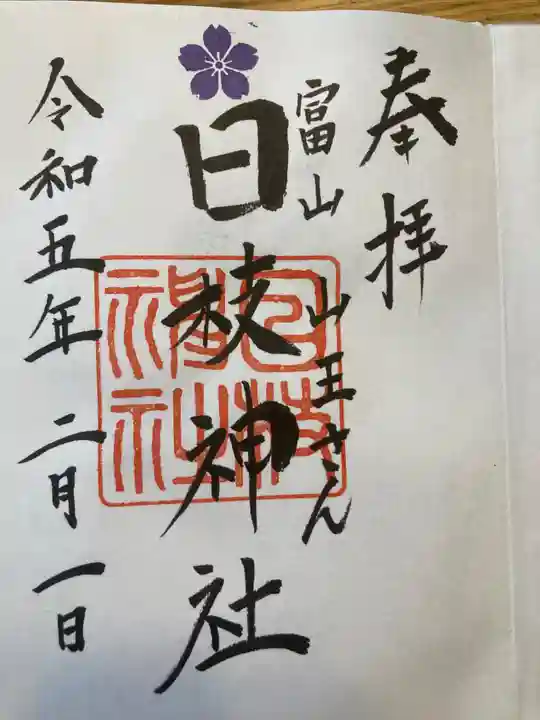 奉拝
富山
山王さん
日枝神社
令和五年二月一日
日枝神社